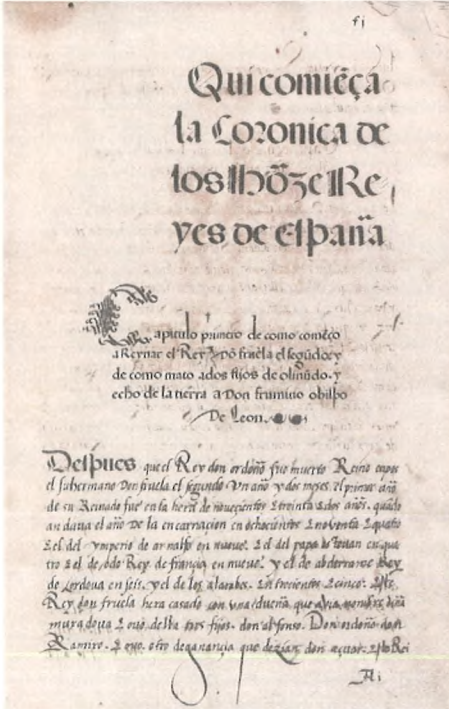 fi
Qui comiẽça
la Coronica de
los Hõze Re
yes de españa
Capitulo primero de como comẽço
a Reynar el Rey Dõ fruela el segũdo y
de como mato ados fijos de olmũdo. y
echo de la tierra a Don frumino obispo
De Leon.
Despues que el Rey don ordoño fue muerto Reino enpos
el su hermano Don fruela el segundo Un año y dos meses. el primer año
de su Reinado fue en la hera de novecientos & treinta & dos años. quãdo
andava el año de la encarnacion en ochocientos & noventa & quatro
& el del ymperio de arnalfo en nueve. & el del papa en qua
tro & el de odo Rey de francia en nueve. y el de abderrame Rey
de cordova en seis. y el de los alarabes. en trecientos & cinco. Este
Rey don fruela hera casado con una dueña que avia nombre doña
& ovo della tres fijos. don alfonso. Don ordoño. don
Ramiro. & ovo otro de ganancia que dezian don açnar. Este Rei
A i